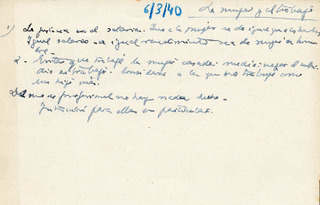 6/3/40
La mujer y el trabajo
1) La justicia en el salario. Que a la mujer se dé igual que al hombre
Igual salario a igual rendimiento sea de mujer o hom
bre
2. Evitar que trabaje la mujer casada: medio: negar el subsi
dio no trabajo. Considerar a la que no trabaja como
un hijo más.
De lo profesional no hay nada hecho.
para ellas en particular.